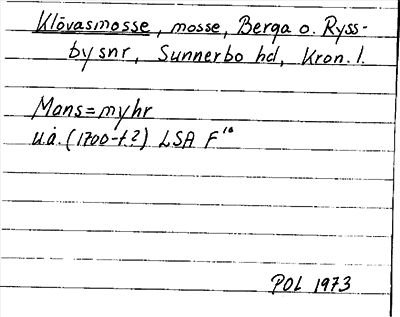 Klövasmosse, mosse, Berga o. Ryss-
by snr, Sunnerbo hd, Kron. l.
Mans=myhr
u.å. (1700-t.?) LSA F¹⁶
POL 1973